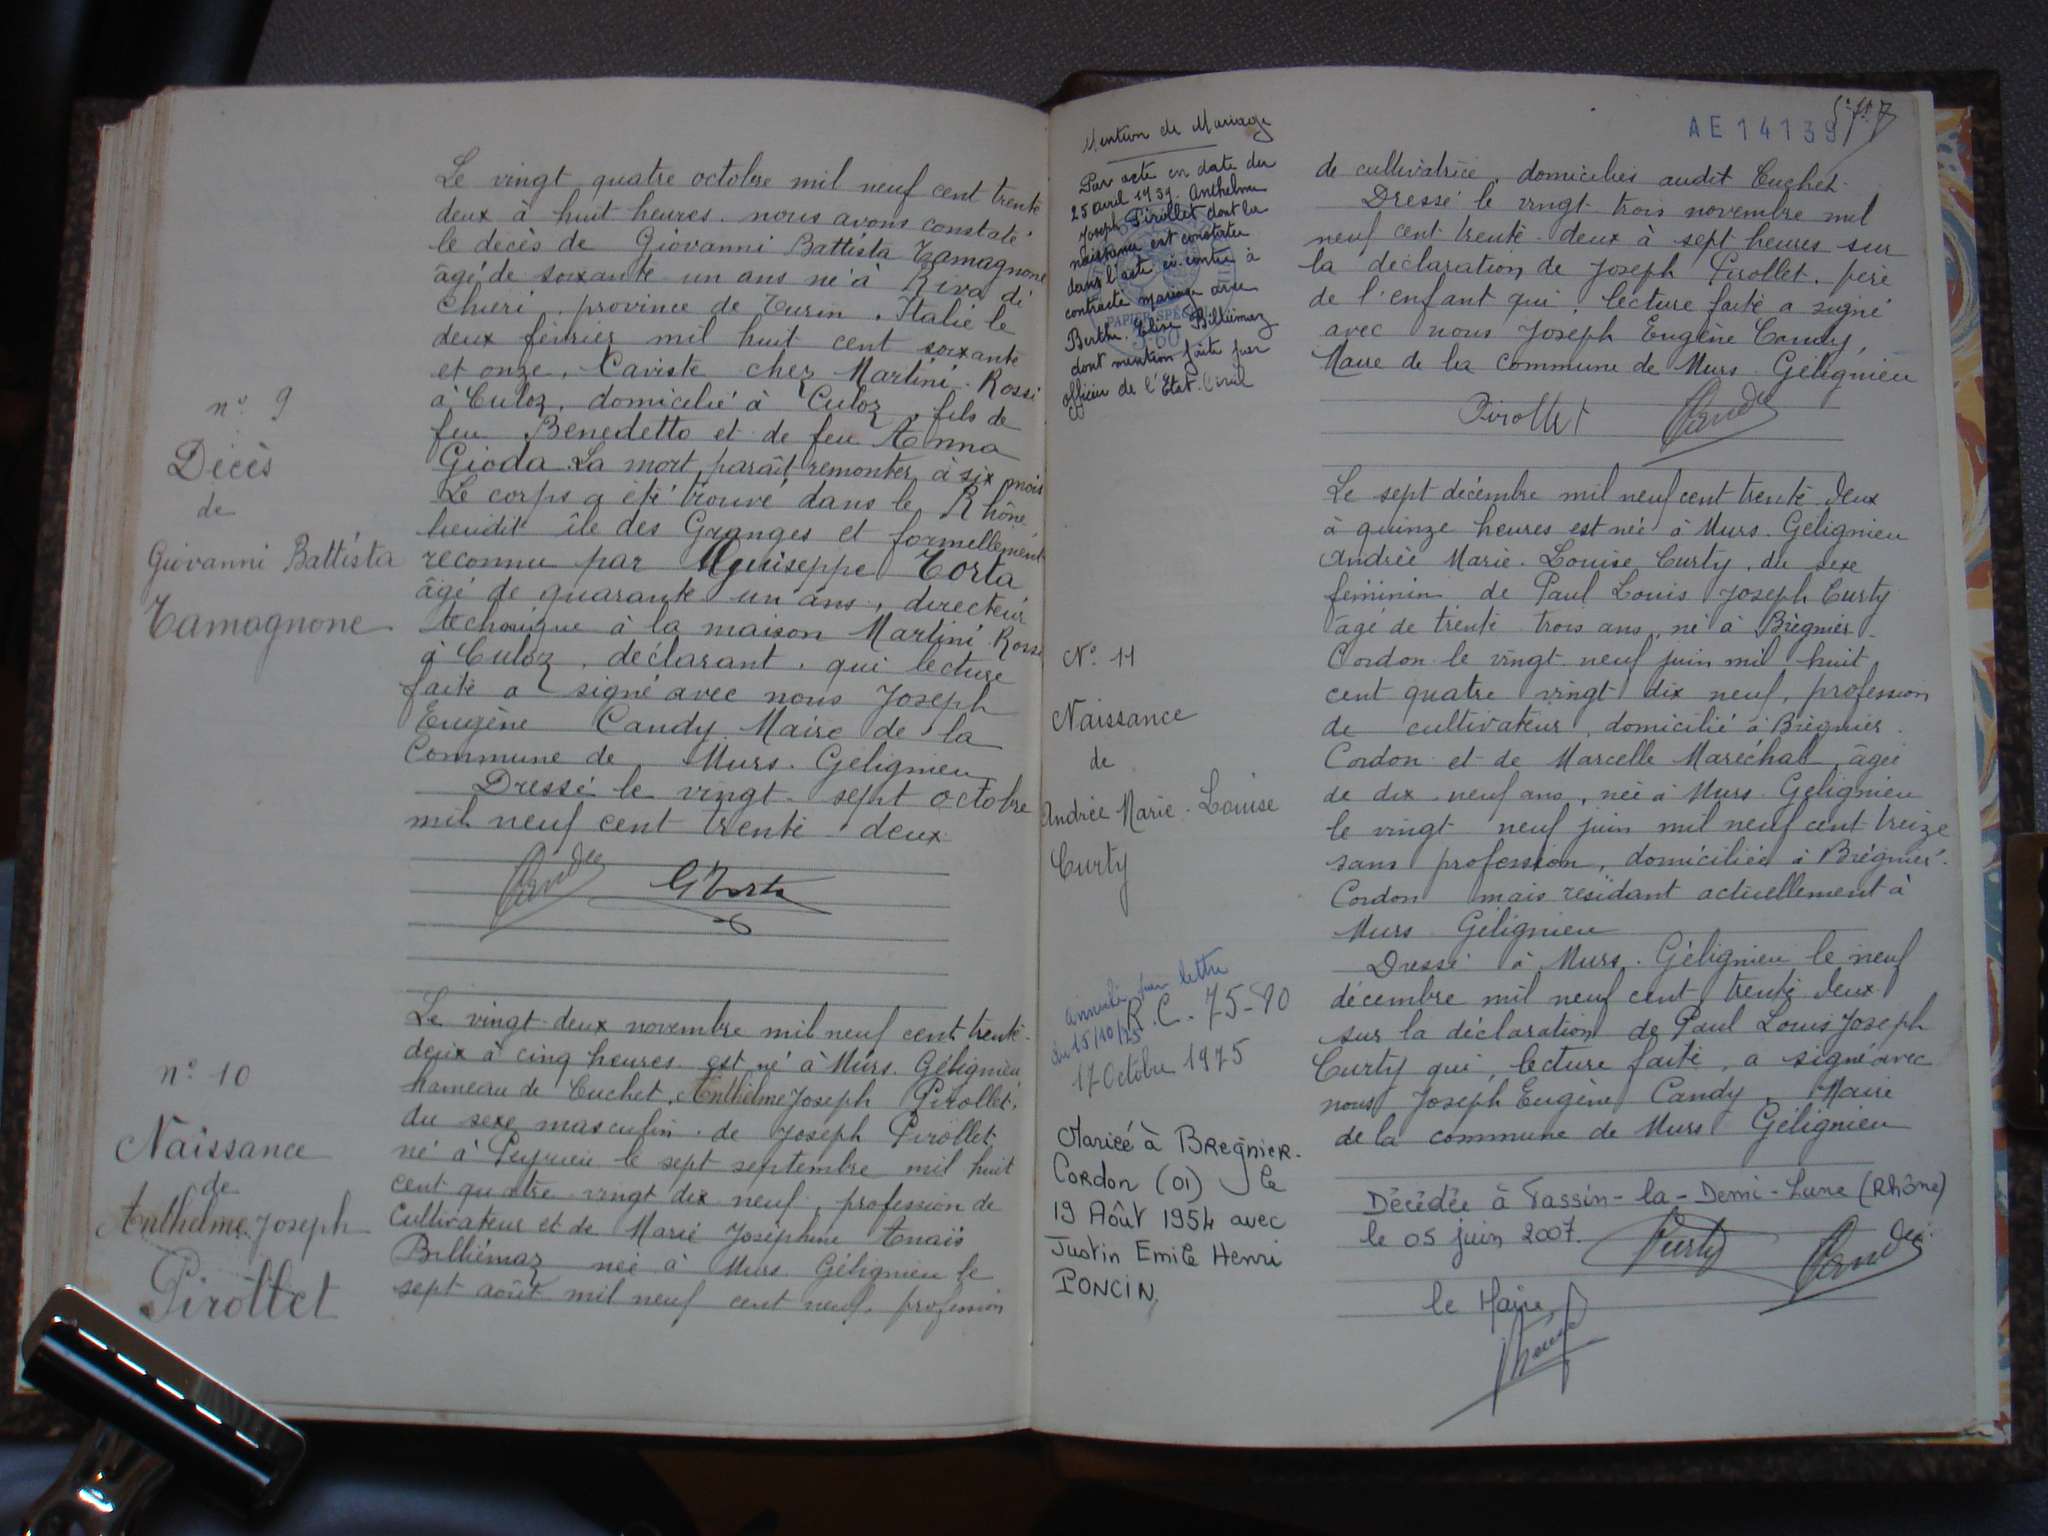 n° 9
Décès
de
Giovanni Battista
Tamagnone
Le vingt quatre octobre mil neuf cent trente
deux à huit heures. nous avons constaté
le décès de Giovanni Battista Tamagnone
âgé de soixante un ans né à Riva di
Chieri, province de Turin, Italie le
deux février mil huit cent soixante
et onze, Caviste chez Martini. Rossi
à Culoz, domicilié à Culoz, fils de
feu Benedetto et de feu Anna
Gioda. La mort, paraît remonter, à six mois
Le corps a été trouvé dans le Rhône
lieudit île des Granges et formellement
reconnu par Guiseppe Torta
âgé de quarante un ans, directeur
technique à la maison Martini Rossi
à Culoz, déclarant, qui lecture
faite a signé avec nous Joseph
Eugène Candy Maire de la
Commune de Murs. Gélignieu
Dressé le vingt. sept octobre
mil neuf cent trente deux
G Torta
n° 10
Naissance
de
Anthelme Joseph
Pirollet
Le vingt-deux novembre mil neuf cent trente-
deux à cinq heures est né à Murs. Gélignieu
hameau de Cuchet, Anthelme Joseph Pirollet,
du sexe masculin, de Joseph Pirollet
né à Peyrieu le sept septembre mil huit
cent quatre vingt dix neuf, profession de
Cultivateur et de Marie Joséphine Anaïs
Billiémaz née à Murs Gélignieu le
sept août mil neuf cent neuf, profession
AE 14139
Mention de Mariage
Par acte en date du
25 avril 1939. Anthelme
Joseph Pirollet dont la
naissance est constatée
dans l'acte ci-contre à
contracté mariage avec
Berthe Elise Billiémaz
dont mention faite par
officier de l'Etat-Civil
PAPIER SPÉCIAL
3.60
de cultivatrice, domiciliés audit Cuchet
Dressé le vingt-trois novembre mil
neuf cent trente-deux à sept heures sur
la déclaration de Joseph Pirollet, père
de l'enfant qui, lecture faite a signé
avec nous Joseph Eugène Candy,
Maire de la commune de Murs Gélignieu
Pirollet Candy
N° 11
Naissance
de
Andrée Marie-Louise
Curty
Le sept décembre mil neuf cent trente deux
à quinze heures est née à Murs. Gélignieu
Andrée Marie-Louise Curty, du sexe
féminin de Paul Louis Joseph Curty
âgé de trente trois ans, né à Brégnier-
Cordon le vingt neuf juin mil huit
cent quatre vingt dix neuf, profession
de cultivateur, domicilié à Brégnier.
Cordon et de Marcelle Maréchal, âgée
de dix-neuf ans, née à Murs. Gélignieu
le vingt neuf juin mil neuf cent treize
sans profession, domiciliée à Brégnier.
Cordon mais résidant actuellement à
Murs Gélignieu
Dressé à Murs. Gélignieu le neuf
décembre mil neuf cent trente deux
sur la déclaration de Paul Louis Joseph
Curty qui, lecture faite, a signé avec
nous Joseph Eugène Candy, Maire
de la commune de Murs Gélignieu
annulé par lettre
du 15/10/75
R.C. 75-80
17 Octobre 1975
Mariée à BREGNIER-
CORDON (01) le
19 Août 1954 avec
Justin Emile Henri
PONCIN.
Décédée à Tassin-la-Demi-Lune (Rhône)
le 05 juin 2007.
Curty Candy
le Maire,